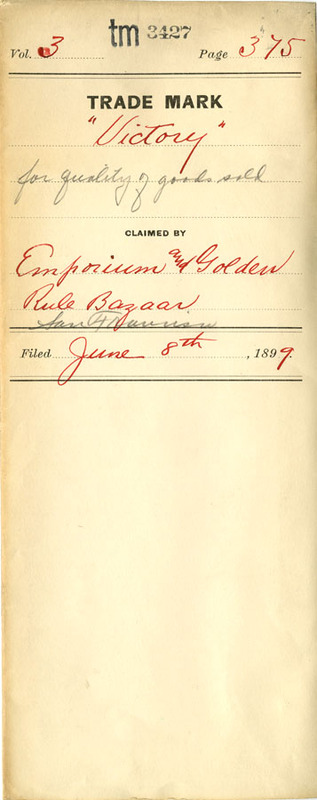 tm 3427
Vol. 3 Page 375
TRADE MARK
"Victory"
for quality of goods sold
CLAIMED BY
Emporium and Golden
Rule Bazaar
San Francisco
Filed June 8th, 1899.